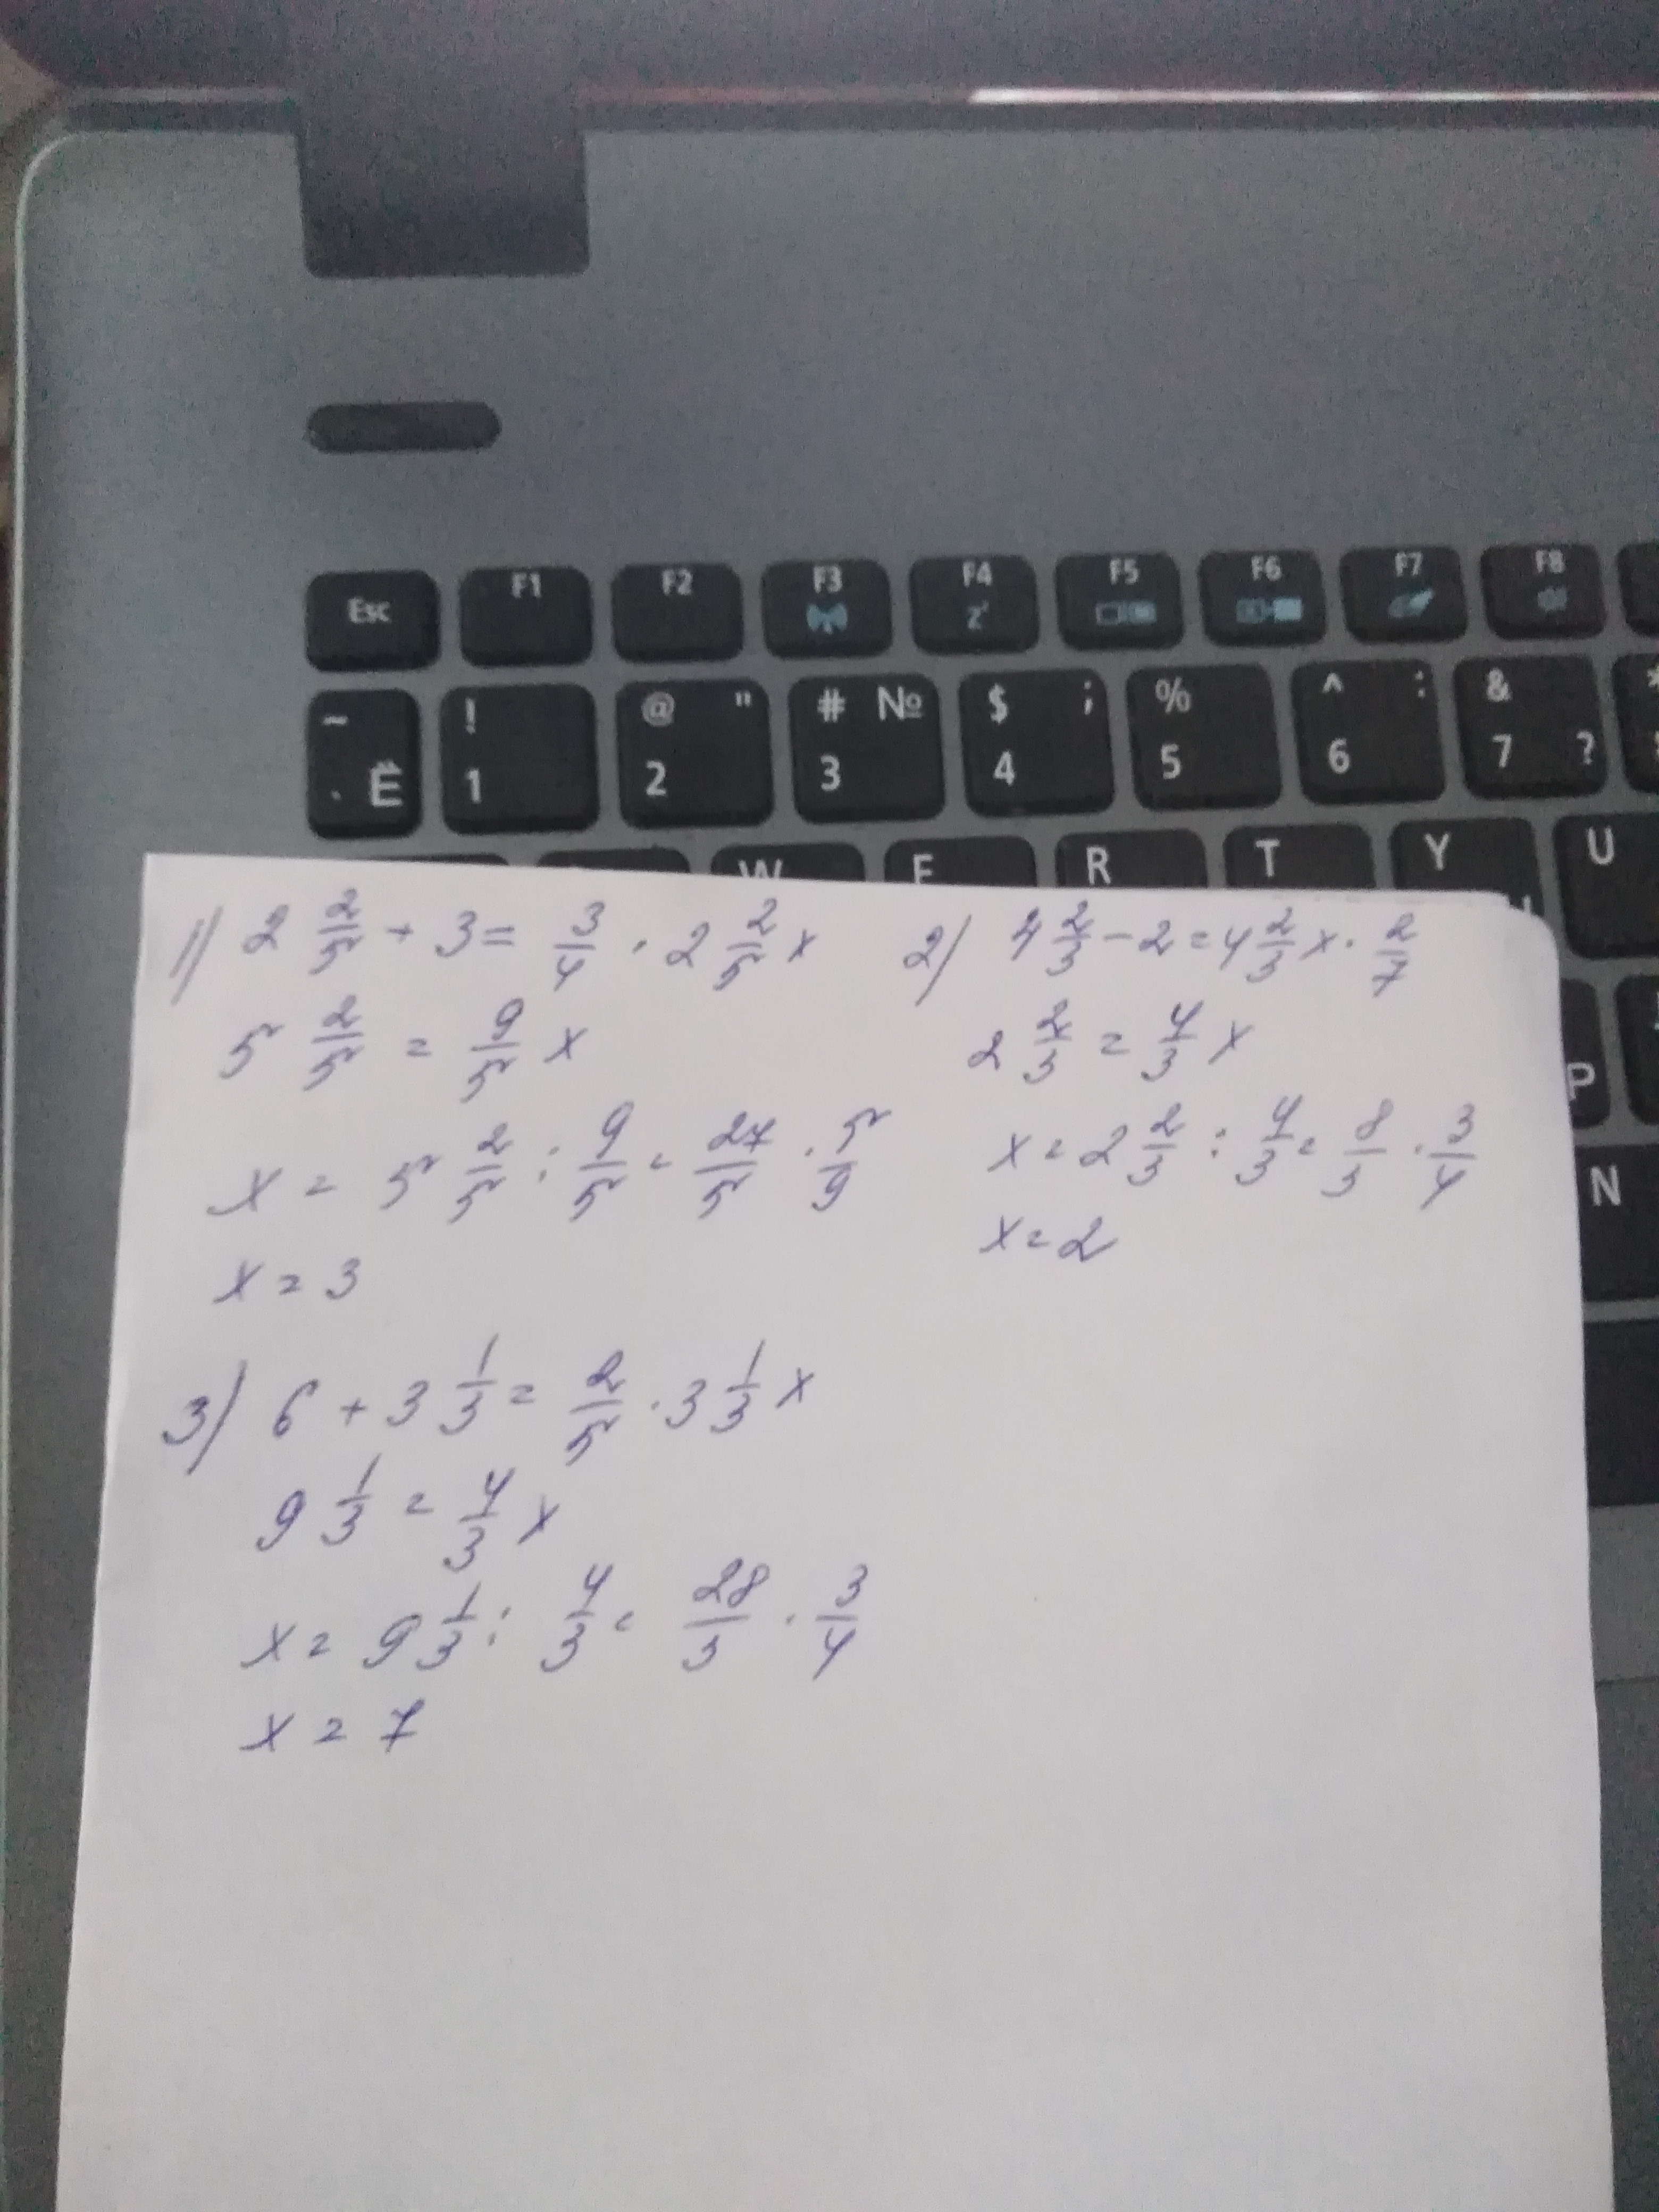 Esc F1 F2 F3 F4 F5 F6 F7 F8
~ Ё ! 1 @ " 2 # № 3 $ ; 4 % 5 ^ : 6 & 7 ?
W E R T Y U
P
N
1) 2 2/5 + 3 = 3/4 · 2 2/5 x
5 2/5 = 9/5 x
x = 5 2/5 : 9/5 = 27/5 · 5/9
x = 3
2) 4 2/3 - 2 = 4 2/3 x · 2/7
2 2/3 = 4/3 x
x = 2 2/3 : 4/3 = 8/3 · 3/4
x = 2
3) 6 + 3 1/3 = 2/5 · 3 1/3 x
9 1/3 = 4/3 x
x = 9 1/3 : 4/3 = 28/3 · 3/4
x = 7